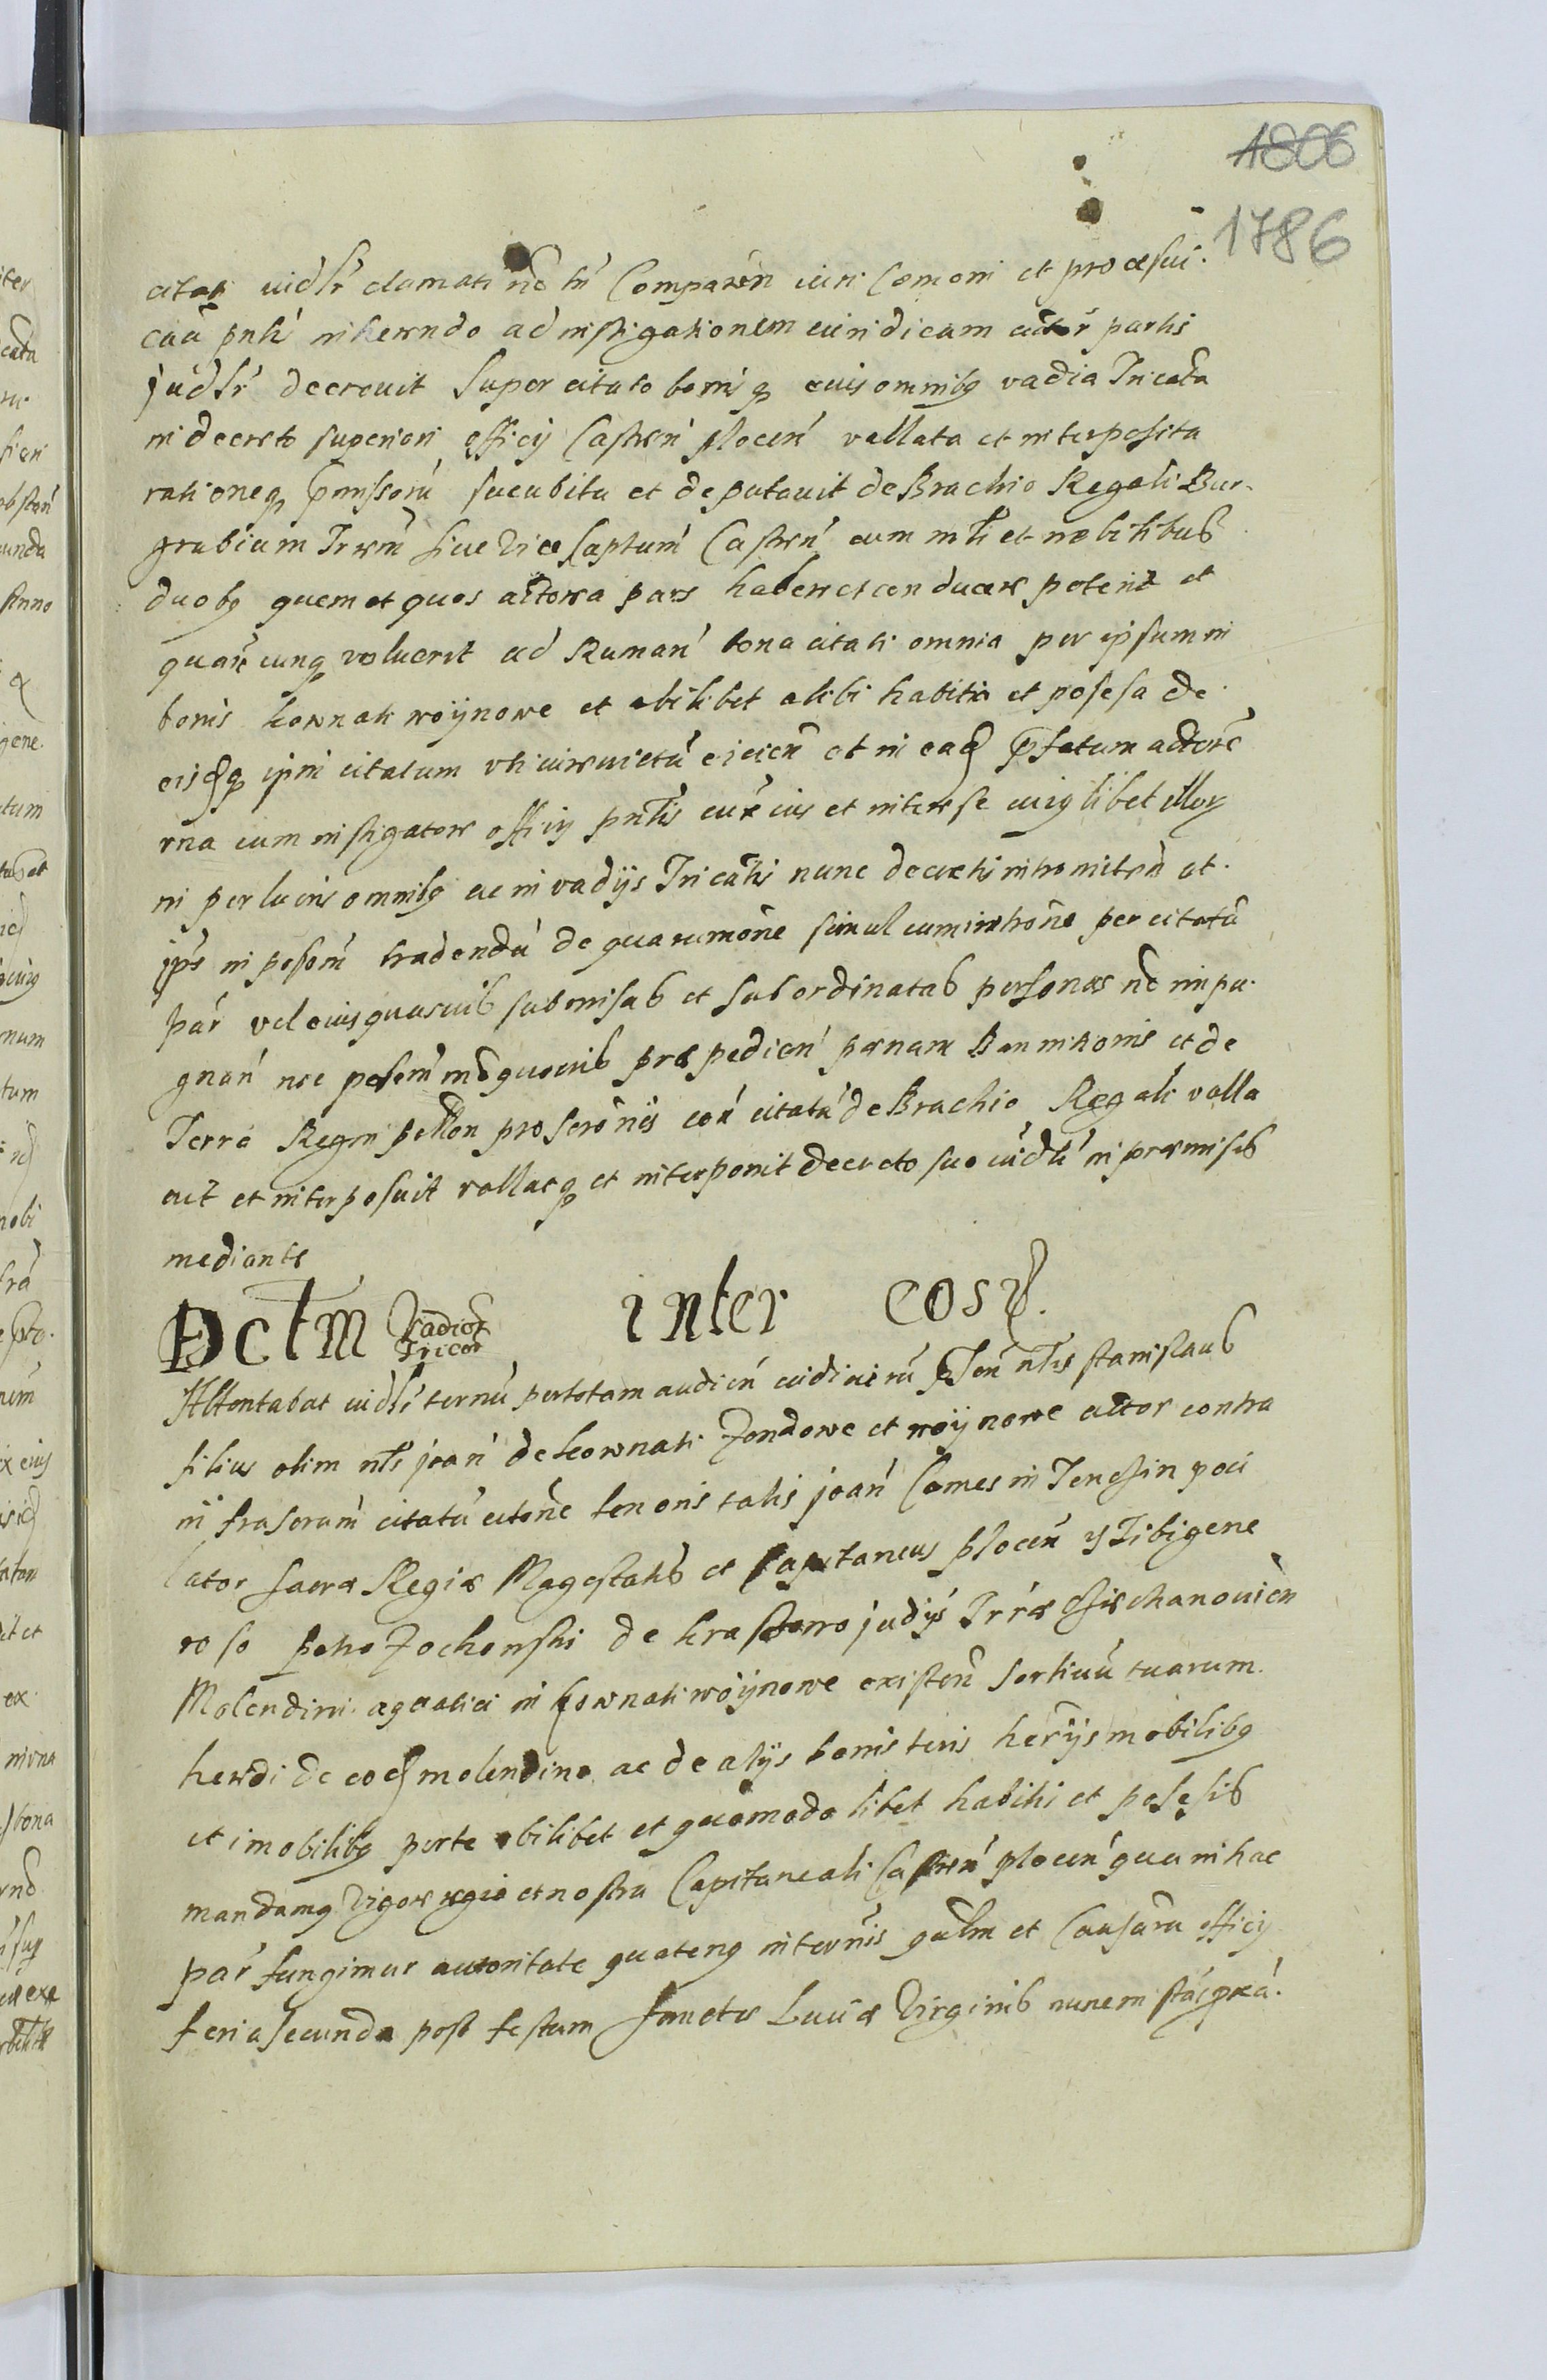 1806
1786
citati iudlr clamati nō tn̄ Comparen̄ iuri Comoni et procesui
cãã pnti inherendo ad instigationem iuridicam actor̄ partis
judlr decrevit super citato bonisq eius omnibq vadia Tricata
in decreto superiori officij Castren̄ plocen̄ vallata et interposita
rationeq pmissorū sucubita et deputavit de Brachio Regali Bur-
grabium Trrem̄ sive Vice Captum̄ Castren̄ cum mti et nobilibus
duobq quem et quos actorea pars habere et conducere poterit et
quan̄cunq voluerit ad Ruman̄ bona citati omnia per ipsum in
bonis kownati woynowe et ubilibet alibi habita et posesa de
eisdq ipm̄ citatum uti iure victū eiicien̄ et in ead pfatum actorē
una cum instigatore officij pntis cur̄ eius et interese cuiqlibet illor
in perlucris omnibq ac in vadijs Tricatis nunc decretis intromiten̄ et
ips in posem̄ tradendū de qua rumōne simul cum intrōne per citatū
par̄ vel eius quasvis submisas et subordinatas personas nō inpu-
gnan̄ nec posem̄ mō quovis præpedien̄ pænam Bannitionis et de
Terra Regni pollon proscrōnis con̄ citatū de Brachio Regali valla
vit et interposuit vallatq et interponit decreto suo iudli in præmisis
mediante
Dctm Vadior Tricat inter eosd.
Attentabat iudlr ternū per totam audien̄ iudiciorū pten̄ nlis stanislaus
filius olim nlis joan̄ de kownati Zondowe et woynowe actor contra
infrascrum̄ citatū citōne tenoris talis joan̄ Comes in Tenczin poci
lator sacræ Regiæ Magestatis et Capitaneus plocen̄ etc Tibi gene
roso petro Zochowski de krassowo judij Trræ Ciechanovien
Molendini aquatici in kownati woynowe existen̄ sortiuū tuarum
heredi de eod molendino ac de alijs bonis tuis herijs mobilibq
et imobilibq per te ubilibet et quomodolibet habitis et posesis
mandamq Vigore regia et nostra Capitaneali Castren̄ plocen̄ qua in hac
par̄ fungimur autoritate quatenq in ternis qulm et Causarū officij
feria secunda post festum sanctæ Luciæ Virginis nunc instā